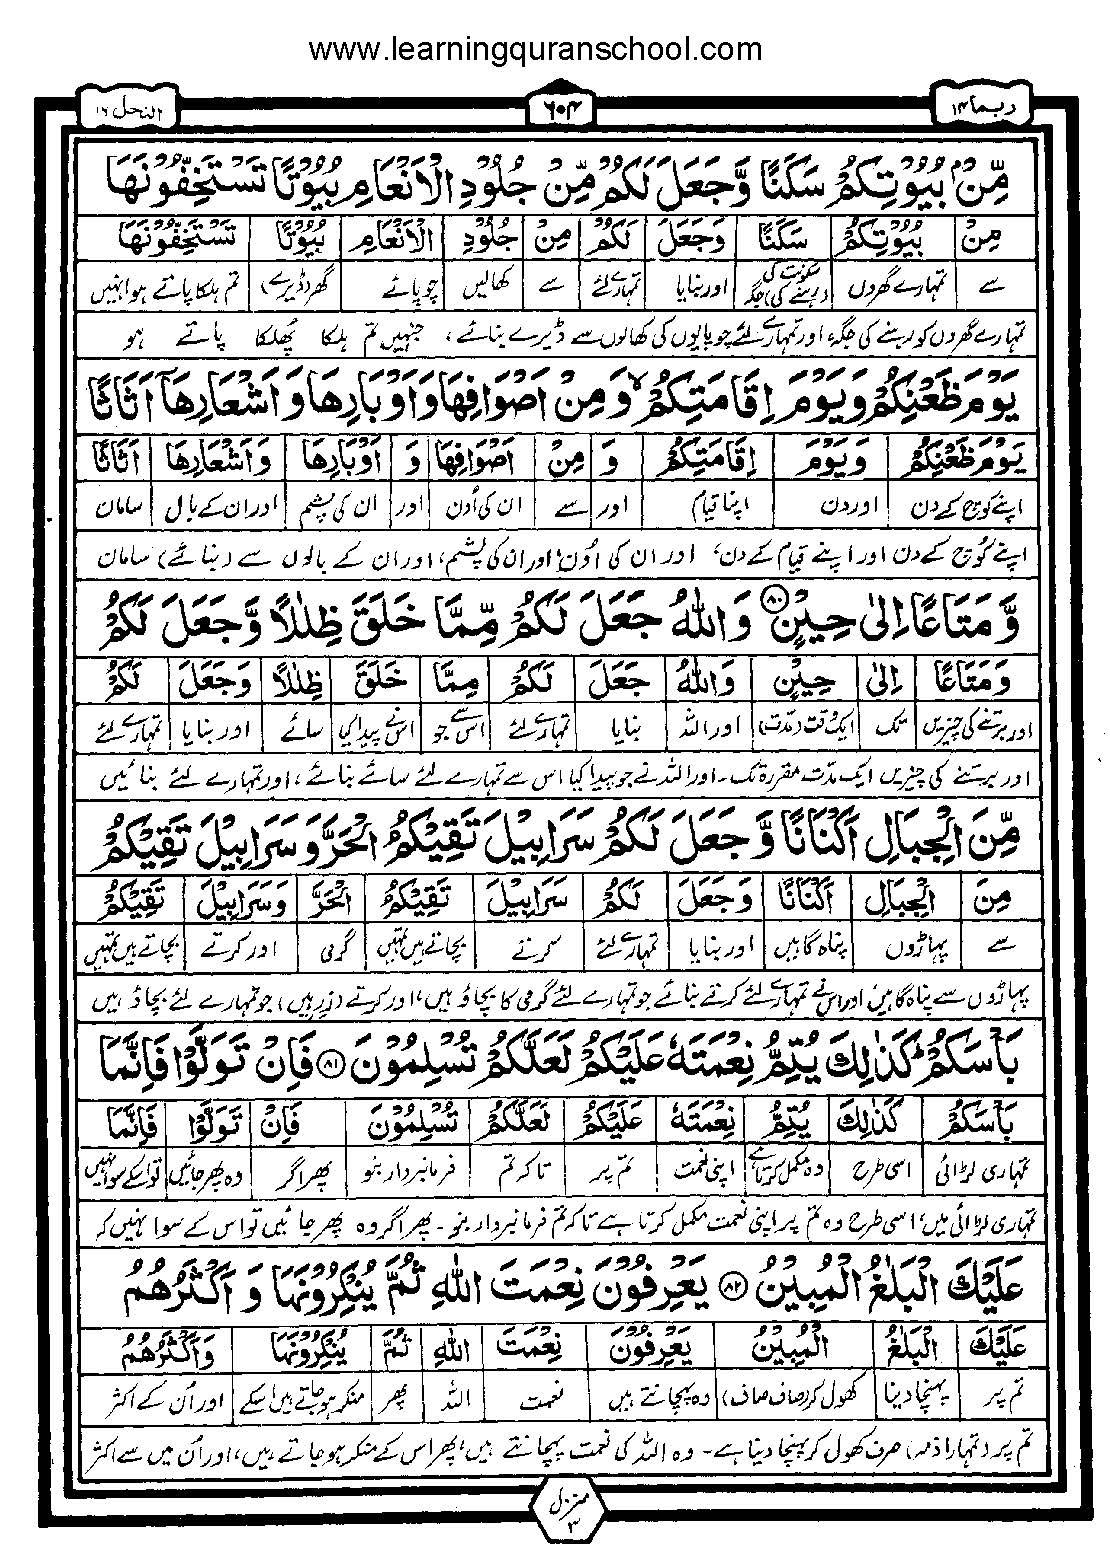 www.learningquranschool.com
ربما ۱۴
۶۰۴
النحل ۱۶
مِّنْۢ بُیُوْتِكُمْ سَكَنًا وَّجَعَلَ لَكُمْ مِّنْ جُلُوْدِ الْاَنْعَامِ بُیُوْتًا تَسْتَخِفُّوْنَهَا
مِنْ بُیُوْتِكُمْ سَكَنًا وَجَعَلَ لَكُمْ مِنْ جُلُوْدِ الْاَنْعَامِ بُیُوْتًا تَسْتَخِفُّوْنَهَا
سے تمہارے گھروں سکونت کی (رہنے کی) جگہ اور بنایا تمہارے لئے سے کھالیں چوپائے گھر (ڈیرے) تم ہلکا پاتے ہو انہیں
تمہارے گھروں کو رہنے کی جگہ، اور تمہارے لئے چوپایوں کی کھالوں سے ڈیرے بنائے، جنہیں تم ہلکا پھلکا پاتے ہو
یَوْمَ ظَعْنِكُمْ وَیَوْمَ اِقَامَتِكُمْ ۙ وَمِنْ اَصْوَافِهَا وَاَوْبَارِهَا وَاَشْعَارِهَاۤ اَثَاثًا
یَوْمَ ظَعْنِكُمْ وَیَوْمَ اِقَامَتِكُمْ وَ مِنْ اَصْوَافِهَا وَ اَوْبَارِهَا وَاَشْعَارِهَا اَثَاثًا
اپنے کوچ کے دن اور دن اپنا قیام اور سے ان کی اُون اور ان کی پشم اور ان کے بال سامان
اپنے کوچ کے دن اور اپنے قیام کے دن، اور ان کی اُون، اور ان کی پشم، اور ان کے بالوں سے (بنائے) سامان
وَّمَتَاعًا اِلٰی حِیْنٍ ۸۰ وَاللّٰهُ جَعَلَ لَكُمْ مِّمَّا خَلَقَ ظِلٰلًا وَّجَعَلَ لَكُمْ
وَمَتَاعًا اِلٰی حِیْنٍ وَاللّٰهُ جَعَلَ لَكُمْ مِمَّا خَلَقَ ظِلٰلًا وَجَعَلَ لَكُمْ
اور برتنے کی چیزیں تک ایک وقت (مدت) اور اللہ بنایا تمہارے لئے اس سے جو اس نے پیدا کیا سائے اور بنایا تمہارے لئے
اور برتنے کی چیزیں ایک مدت مقررہ تک۔ اور اللہ نے جو پیدا کیا اس سے تمہارے لئے سائے بنائے، اور تمہارے لئے بنائیں
مِّنَ الْجِبَالِ اَكْنَانًا وَّجَعَلَ لَكُمْ سَرَابِیْلَ تَقِیْكُمُ الْحَرَّ وَسَرَابِیْلَ تَقِیْكُمْ
مِنَ الْجِبَالِ اَكْنَانًا وَجَعَلَ لَكُمْ سَرَابِیْلَ تَقِیْكُمُ الْحَرَّ وَسَرَابِیْلَ تَقِیْكُمْ
سے پہاڑوں پناہ گاہیں اور بنایا تمہارے لئے کرتے بچاتے ہیں تمہیں گرمی اور کرتے بچاتے ہیں تمہیں
پہاڑوں سے پناہ گاہیں اور اس نے تمہارے لئے کرتے بنائے جو تمہارے لئے گرمی کا بچاؤ ہیں، اور کرتے (زرہیں) جو تمہارے لئے بچاؤ ہیں
بَاْسَكُمْ ؕ كَذٰلِكَ یُتِمُّ نِعْمَتَهٗ عَلَیْكُمْ لَعَلَّكُمْ تُسْلِمُوْنَ ۸۱ فَاِنْ تَوَلَّوْا فَاِنَّمَا
بَاْسَكُمْ كَذٰلِكَ یُتِمُّ نِعْمَتَهٗ عَلَیْكُمْ لَعَلَّكُمْ تُسْلِمُوْنَ فَاِنْ تَوَلَّوْا فَاِنَّمَا
تمہاری لڑائی اسی طرح وہ مکمل کرتا ہے اپنی نعمت تم پر تاکہ تم فرمانبردار بنو پھر اگر وہ پھر جائیں تو اسکے سوا نہیں
تمہاری لڑائی میں، اسی طرح وہ تم پر اپنی نعمت مکمل کرتا ہے تاکہ تم فرمانبردار بنو۔ پھر اگر وہ پھر جائیں تو اس کے سوا نہیں کہ
عَلَیْكَ الْبَلٰغُ الْمُبِیْنُ ۸۲ یَعْرِفُوْنَ نِعْمَتَ اللّٰهِ ثُمَّ یُنْكِرُوْنَهَا وَاَكْثَرُهُمُ
عَلَیْكَ الْبَلٰغُ الْمُبِیْنُ یَعْرِفُوْنَ نِعْمَتَ اللّٰهِ ثُمَّ یُنْكِرُوْنَهَا وَاَكْثَرُهُمُ
تم پر پہنچا دینا کھول کر (صاف صاف) وہ پہچانتے ہیں نعمت اللہ پھر منکر ہو جاتے ہیں اسکے اور اُن کے اکثر
تم پر (تمہارا ذمہ) صرف کھول کر پہنچا دینا ہے۔ وہ اللہ کی نعمت پہچانتے ہیں، پھر اس کے منکر ہو جاتے ہیں، اور اُن میں سے اکثر
منزل ۳